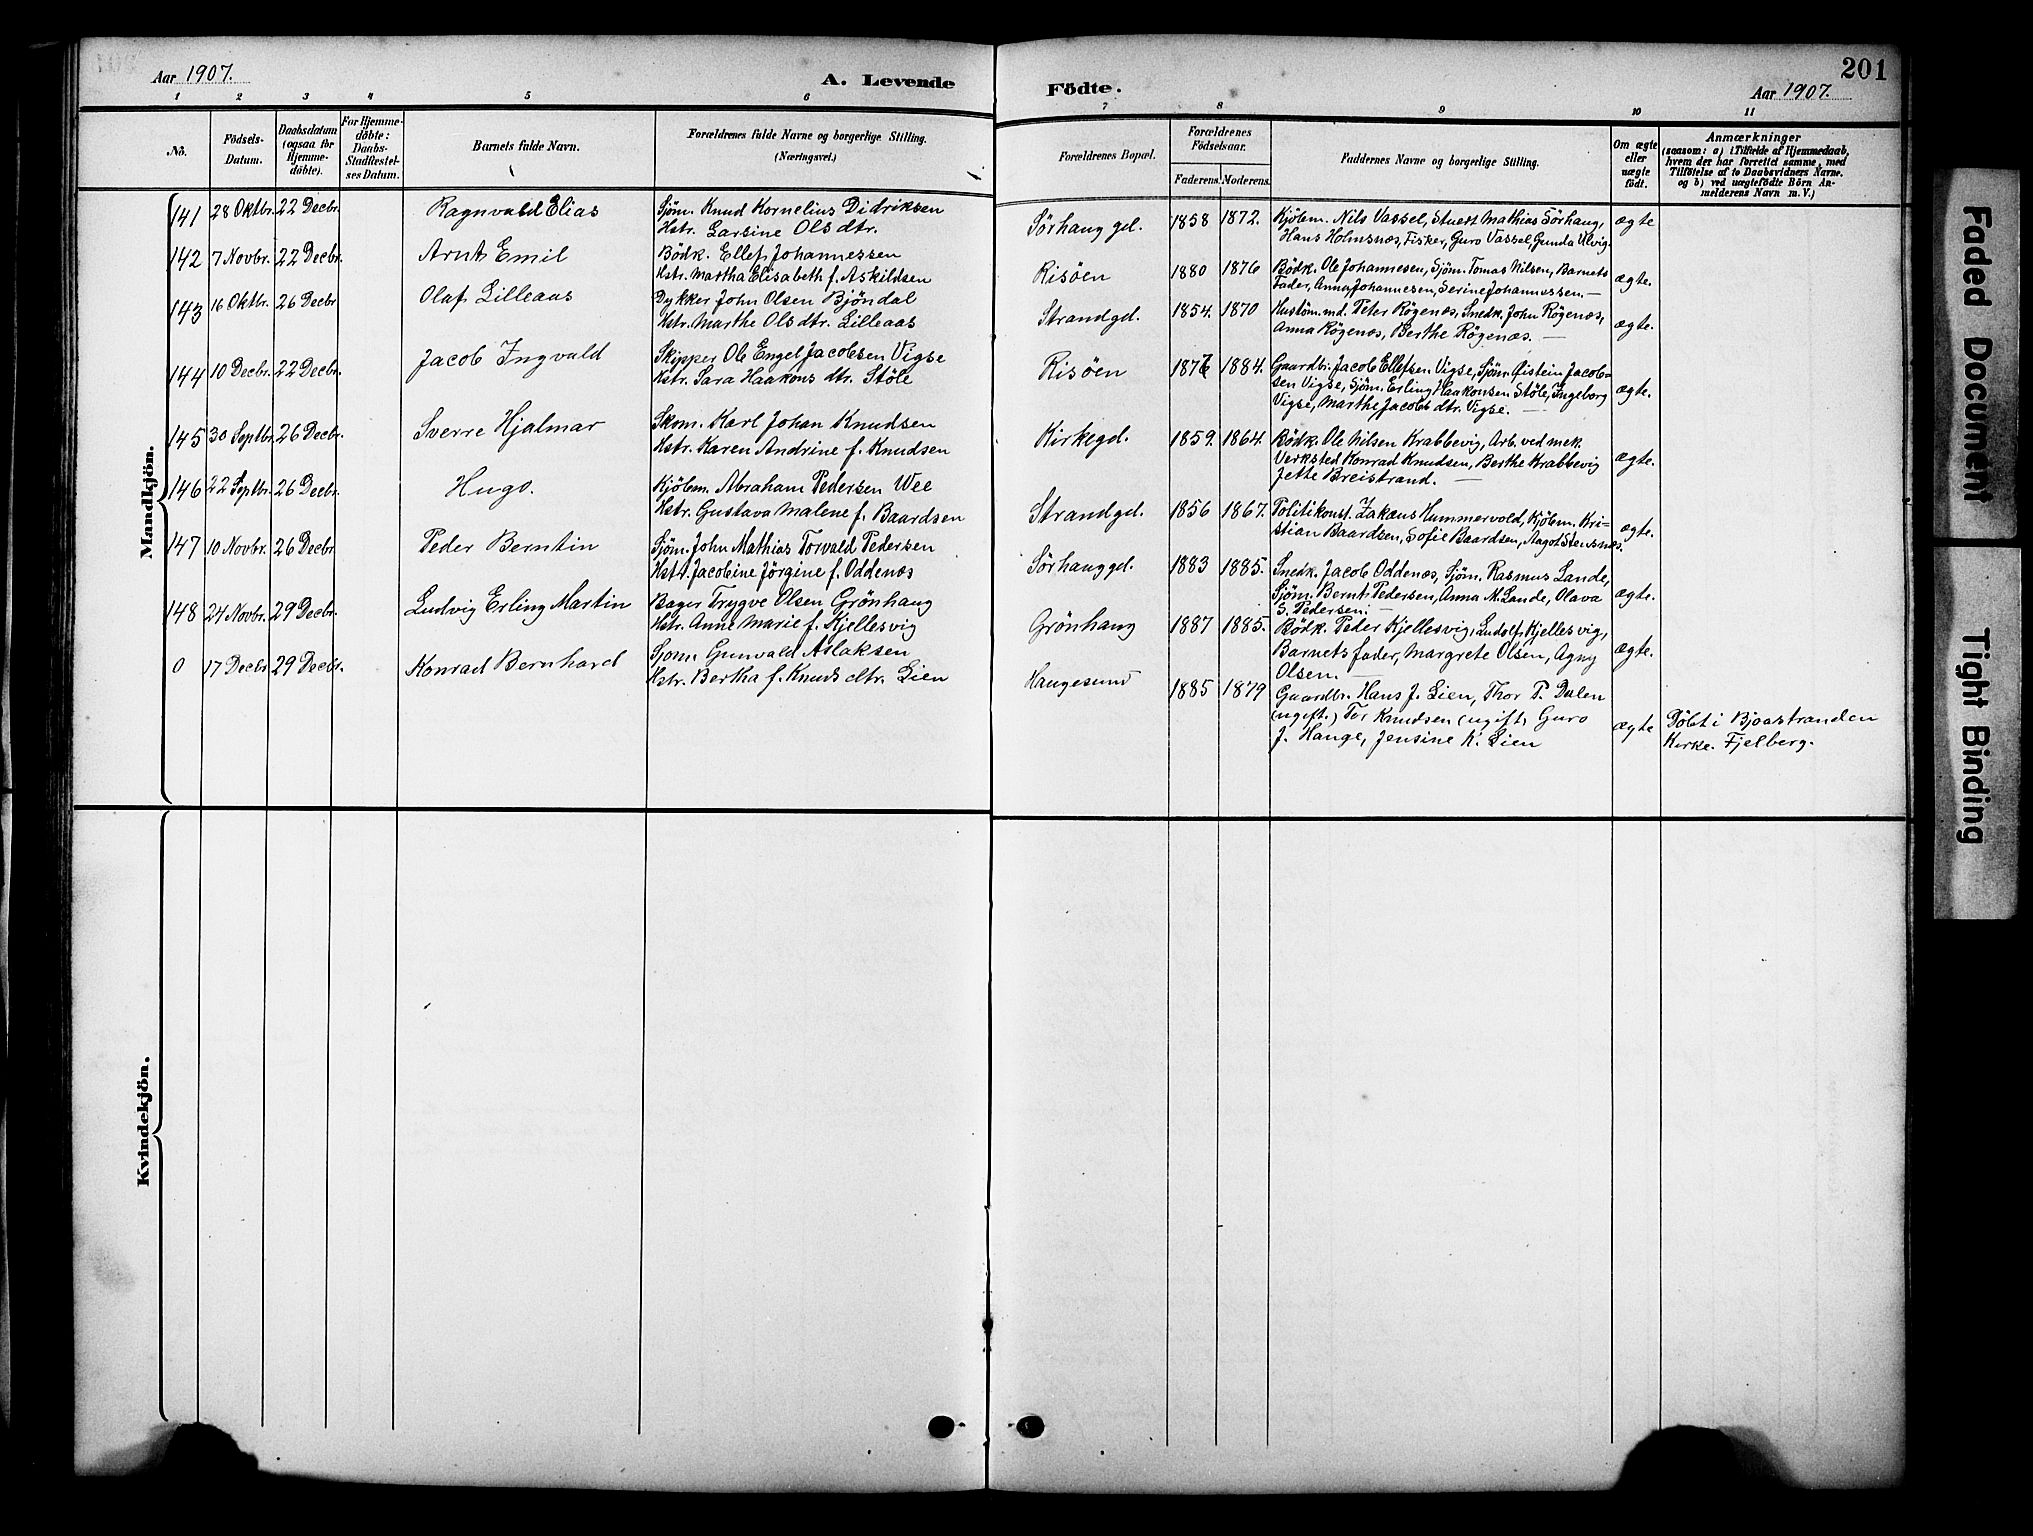 Aar 1907. A. Levende Födte. Aar 1907. 201
1 2 3 4 5 6 7 8 9 10 11
No.
Födsels-Datum.
Daabsdatum (ogsaa for Hjemme-döbte).
For Hjemme-döbte: Daabs-Stadfæstel-ses Datum.
Barnets fulde Navn.
Forældrenes fulde Navne og borgerlige Stilling. (Næringsvei.)
Forældrenes Bopæl.
Forældrenes Födselsaar.
Faderens. Moderens.
Faddernes Navne og borgerlige Stilling.
Om ægte eller uægte födt.
Anmærkninger
(saasom: a) i Tilfælde af Hjemmedaab,
hvem der har forrettet samme, med
Tilföielse af to Daabsvidners Navne.
og b) ved uægtefödte Börn An-
melderens Navn m. V.)
Mandkjön.
141 28 Oktbr. 22 Decbr. Ragnvald Elias Sjöm. Knud Kornelius Didriksen
Hstr. Larsine Olsdtr.
Sörhauggd. 1858 1872. Kjöbm. Nils Vassel, Stuert Mathias Sörhaug,
Hans Holmsnæs, Fisker, Guro Vassel, Gunda Ulvig. ægte
142 7 Novbr. 22 Decbr. Arnt Emil Bödk. Ellef Johannessen
Hstr. Martha Elisabeth f. Askildsen
Risöen 1880 1876 Bödk. Ole Johannesen, Sjöm. Tomas Nilsen, Barnets
Fader, Anna Johannesen, Serine Johannessen. — ægte.
143 16 Oktbr. 26 Decbr Olaf Lilleaas Dykker John Olsen Bjöndal
Hstr. Marthe Olsdtr. Lilleaas
Strandgd. 1854. 1870 Hustöm.md. Peter Rögenæs, Snedk. John Rögenæs,
Anna Rögenæs, Berthe Rögenæs. — ægte.
144 10 Decbr. 22 Decbr. Jacob Ingvald Skipper Ole Engel Jacobsen Vigse
Hstr. Sara Haakonsdtr. Stöle
Risöen 1884. Gaardbr. Jacob Ellefsen Vigse, Sjöm. Øistein Jacob-
sen Vigse, Sjöm. Erling Haakonsen Stöle, Ingeborg
Vigse, Marthe Jacobsdtr. Vigse. — ægte.
145 30 Septbr. 26 Decbr. Sverre Hjalmar Skom. Karl Johan Knudsen
Hstr. Karen Andrine f. Knudsen
Kirkegd. 1859. 1864. Bödk. Ole Nilsen Krabbevig, Arb. ved mek.
Verksted Konrad Knudsen, Berthe Krabbevig
Jette Breistrand. — ægte.
146 22 Septbr. 26 Decbr. Hugo. Kjöbm. Abraham Pedersen Wee
Hstr. Gustava Malene f. Baardsen
Strandgd. 1856 1867. Politikonst. Zakæus Hummervold, Kjöbm. Kri-
stian Baardsen, Sofie Baardsen, Aagot Stensnæs. ægte.
147 10 Novbr. 26 Decbr Peder Berntin Sjöm. John Mathias Torvald Pedersen
Hstr. Jacobine Jörgine f. Oddenæs
Sörhauggd. 1883 1885. Snedk. Jacob Oddenæs, Sjöm. Rasmus Lande,
Sjöm. Bernt Pedersen, Anna M. Lande, Olava
S. Pedersen. — ægte.
148 24 Novbr. 29 Decbr. Ludvig Erling Martin Bager Trygve Olsen Grönhaug
Hstr. Anne Marie f. Kjellesvig
Grönhaug 1887 1885. Bödk. Peder Kjellesvig, Ludolf Kjellesvig,
Barnets fader, Margrete Olsen, Agny
Olsen. — ægte.
0 17 Decbr 29 Decbr. Konrad Bernhard Sjöm. Gunvald Aslaksen
Hstr. Bertha f. Knudsdtr. Lien
Haugesund 1885 1879 Gaardbr. Hans J. Lien, Thor T. Dalen
(ugift.) Tor Knudsen (ugift) Guro
J. Hauge, Jensine K. Lien ægte Döbt i Bjoastranden
Kirke. Fjelberg.
Kvindekjön.
Faded Document
Tight Binding